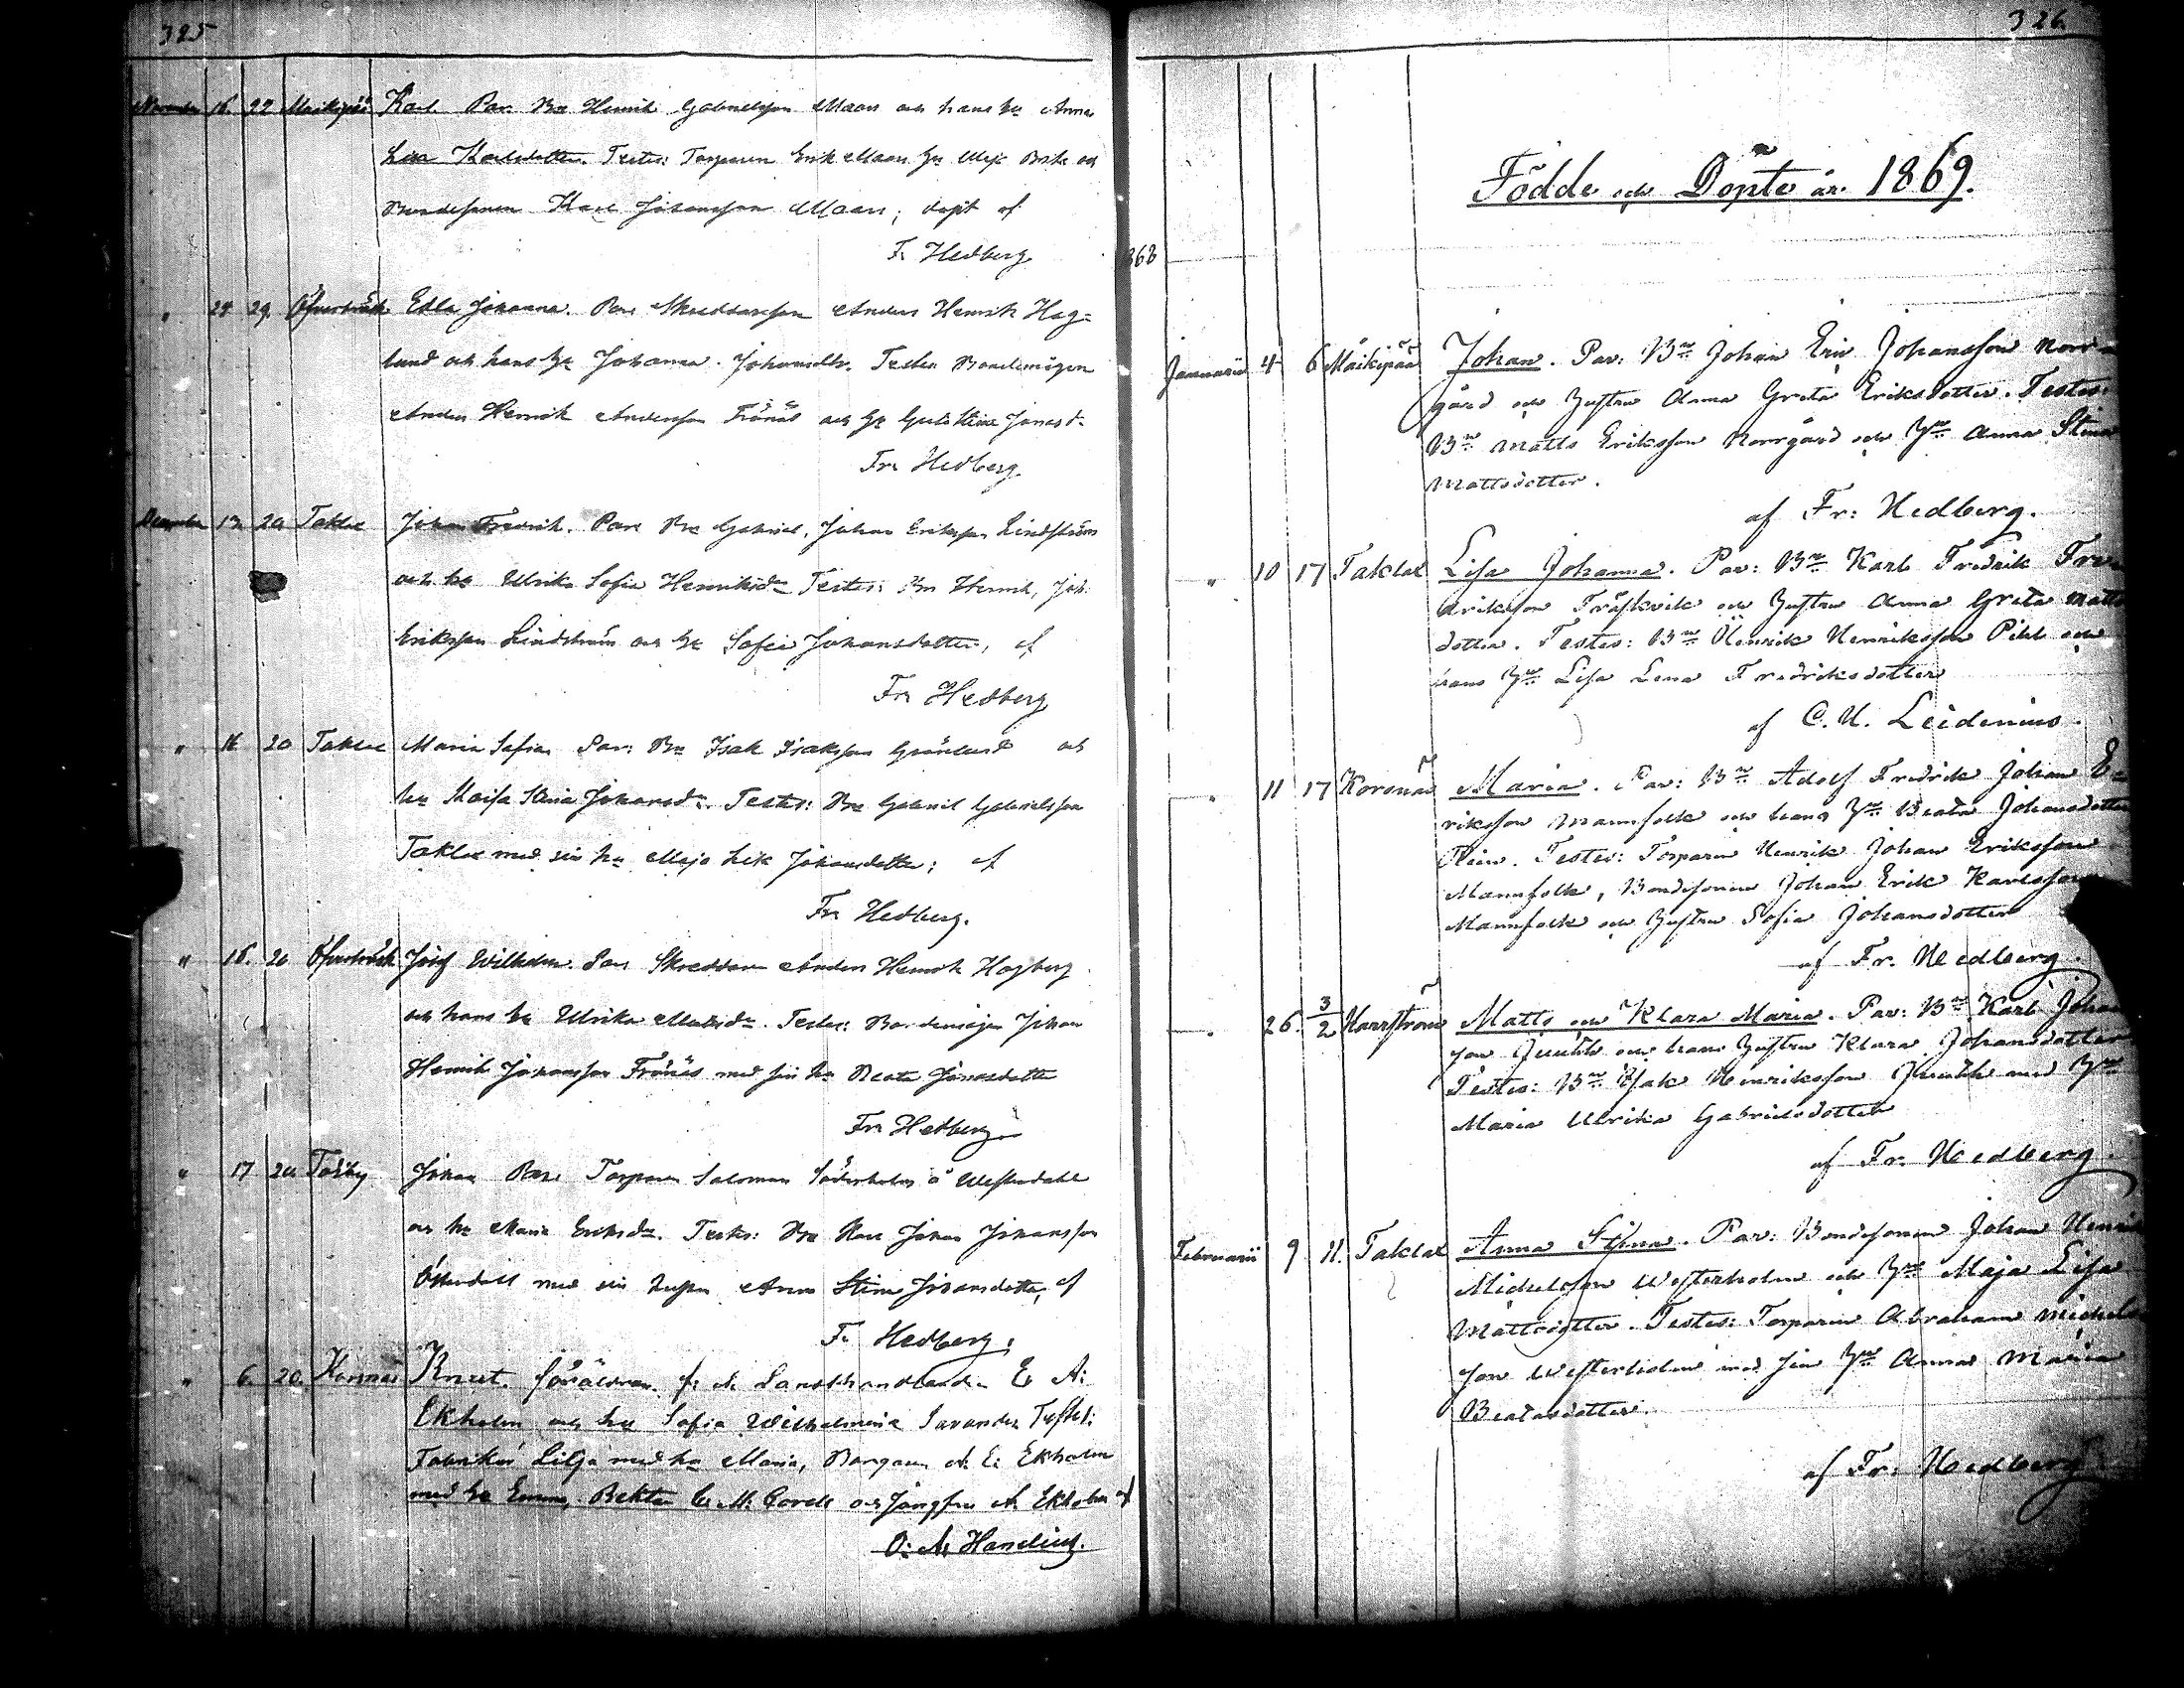 325
November 16. 22 Maikipää Karl. Par. Bn Henrik Gabrielsson Maars och hans hu Anna
Lisa Karlsdotter. Testes: Torparen Erik Maars hu Maja Brita och
Bondesonen Karl Johansson Maars; döpt af
Fr Hedberg
" 28 29. Öfverträsk Edla Johanna. Par: Skreddaresson Anders Henrik Hag=
lund och hans hu Johanna Johansdr. Testes Bondemågen
Anders Henrik Andersson Frönäs och hu Greta Stina Jonasdr
Fr: Hedberg.
December 13 20 Taklax Johan Fredrik. Par: Bn Gabriel, Johan Eriksson Lindström
och hu Ulrika Sofia Henriksdr Testes: Bn Henrik, Joh.
Eriksson Lindström och hu Sofia Johansdotter, af
Fr: Hedberg
" 16 20 Taklax Maria Sofia. Par: Bn Isak Isaksson Grönlund och
hu Maria Stina Johansdr. Testes: Bn Gabriel Gabrielsson
Taklax med sin hu Maja Johansdotter; af
Fr: Hedberg.
" 16. 20 Öfverträsk Josef Wilhelm. Par: Skreddaren Anders Henrik Hagberg
och hans hu Ulrika. Testes: Bondemågen Johan
Henrik Johansson Frönäs med sin hu Beata Jonasdotter
Fr: Hedberg
" 17 20 Töjby Johan Par: Torparen Salomon Söderholm å Westerdahl
och hu Maria Eriksdr. Testes: Bn Karl Johan Johansson
Österdahl med sin hustru Anna Stina Johansdotter, af
Fr Hedberg;
" 6. 20. Korsnäs Knut. föräldrar. Landthandland. E. A:
Ekholm och hu Sofia Wilhelmina Savander Testes:
Fabrikör Lilja med hu Maria, Borgaren A. E: Ekholm
med hu Emma och Jungfru A. Ekholm af
O: A: Handelin.
326
Födde och Döpte år 1869.
1868
Januarii 4 6 Maikipää Johan. Par: Bn Johan Eric Johansson Norr=
gård och Hustru Anna Greta Eriksdotter. Testes:
Bn Matts Eriksson Norrgård och Hu Anna Stina
Mattsdotter.
af Fr: Hedberg.
" 10 17 Taklax Lisa Johanna. Par: Bn Karl Fredrik Fre=
driksson Träskvik och Hustru Anna Greta Matts
dotter. Testes: Bn Henrik Henriksson Pihl och
hans Hu Lisa Lena Fredriksdotter
af C. U. Leidenius.
" 11 17 Korsnäs Maria. Par: Bn Adolf Fredrik Johan E=
riksson Mannfolk och hans Hu Beata Johansdotter
Rein. Testes: Torparen Henrik Johan Eriksson
Mannfolk, Bondesonen Johan Erik Karlsson
Mannfolk och Hustru Sofia Johansdotter
af Fr. Hedberg.
" 26. 3/2 Harrström Matts och Klara Maria. Par: Bn Karl Johan
son Juuth och hans Hustru Klara Johansdotter
Testes: Bn Isak Henriksson Juuth med Hu
Maria Ulrika Gabrielsdotter
af Fr. Hedberg.
Februarii 9 11. Taklax Anna Stina. Par: Bondesonen Johan Henrik
Michelsson Westerholm och Hu Maja Lisa
Mattsdotter. Testes: Torparen Abraham Michels
son Westerholm med sin Hu Anna Maria
Beatasdotter.
af Fr: Hedberg